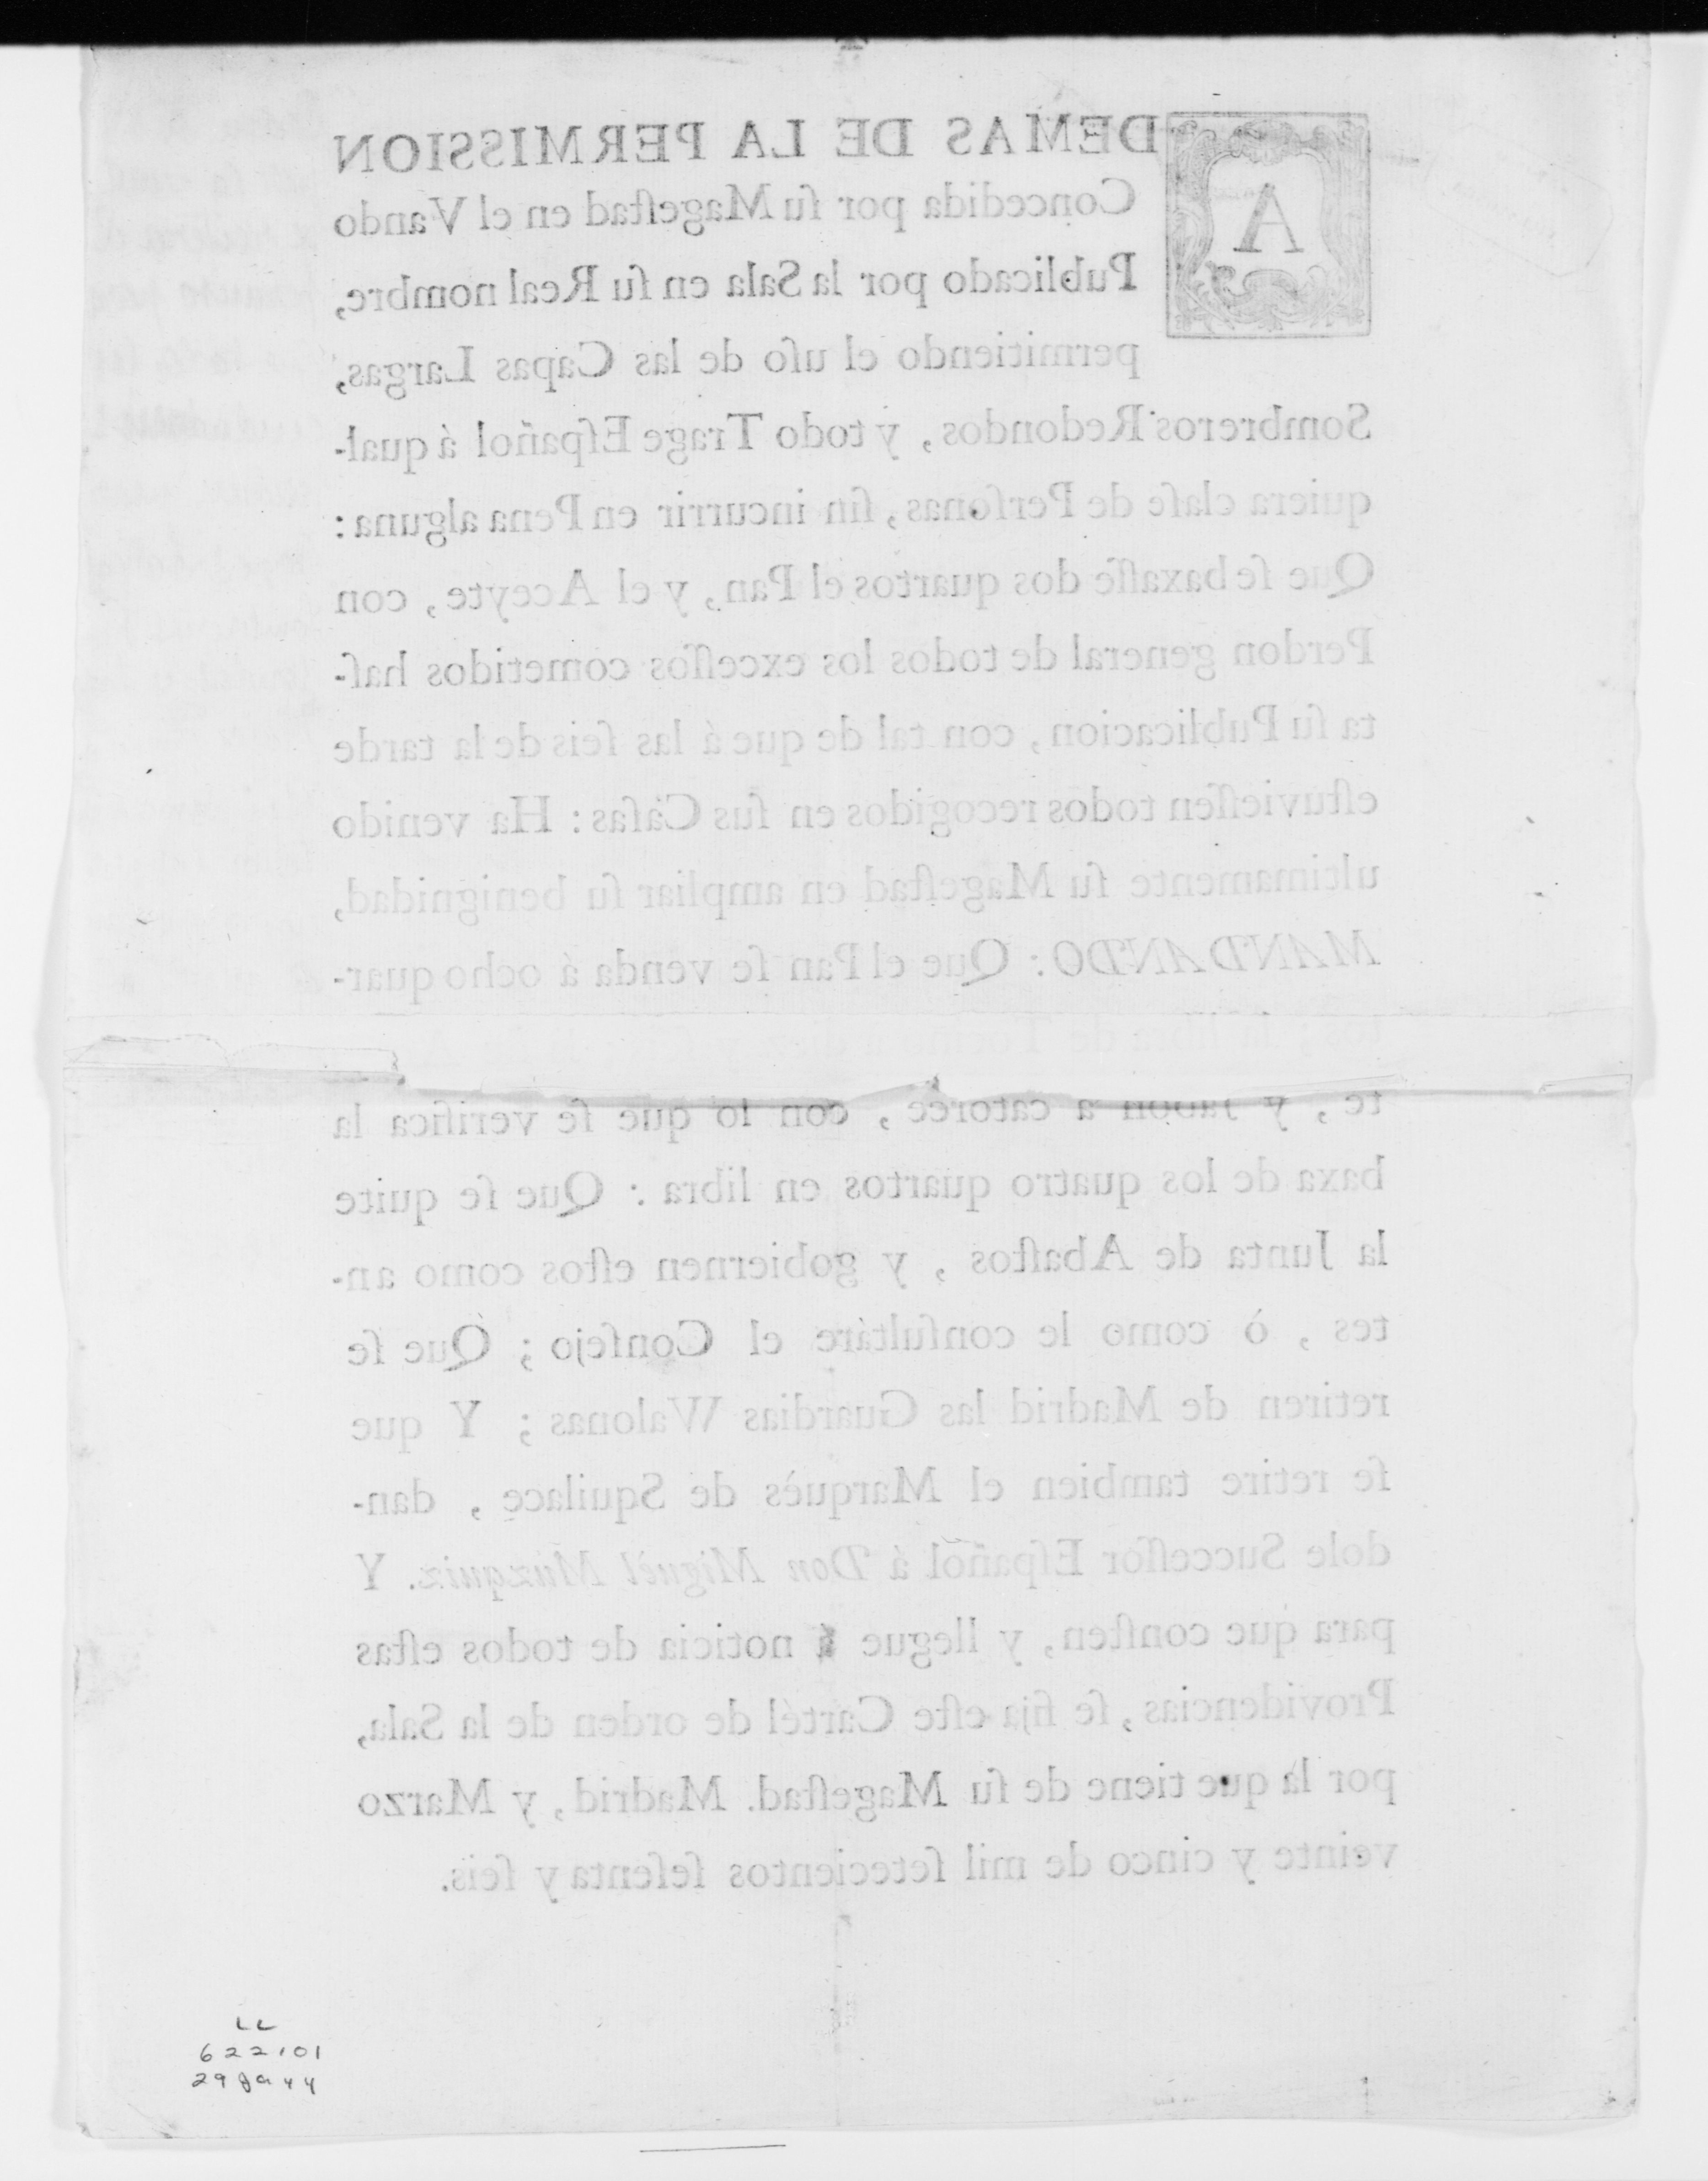 ADEMAS DE LA PERMISSION
Concedida por ſu Mageſtad en el Vando
Publicado por la Sala en ſu Real nombre,
permitiendo el uſo de las Capas Largas,
Sombreros Redondos, y todo Trage Eſpañol á qual-
quiera claſe de Perſonas, ſin incurrir en Pena alguna:
Que ſe baxaſſe dos quartos el Pan, y el Aceyte, con
Perdon general de todos los exceſſos cometidos haſ-
ta ſu Publicacion, con tal de que á las ſeis de la tarde
eſtuvieſſen todos recogidos en ſus Caſas: Ha venido
ultimamente ſu Mageſtad en ampliar ſu benignidad,
MANDANDO: Que el Pan ſe venda á ocho quar-
tos; la libra de Tocino
te, y Jabon a catorce, con lo que ſe verifica la
baxa de los quatro quartos en libra: Que ſe quite
la Junta de Abaſtos, y gobiernen eſtos como an-
tes, ò como le conſultáre el Conſejo; Que ſe
retiren de Madrid las Guardias Walonas; Y que
ſe retire tambien el Marquès de Squilace, dan-
dole Succeſſor Eſpañol á Don Miguèl Muzquiz. Y
para que conſten, y llegue á noticia de todos eſtas
Providencias, ſe fija eſte Cartél de orden de la Sala,
por la que tiene de ſu Mageſtad. Madrid, y Marzo
veinte y cinco de mil ſetecientos ſeſenta y ſeis.
LL
622101
29 Ja 44